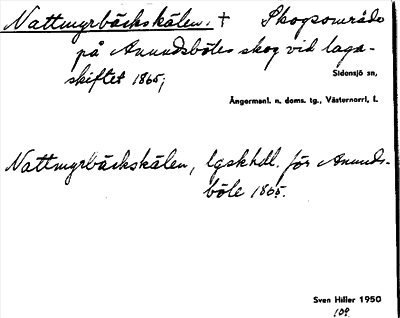 Nattmyrbäckskälen. + Skogsområde
på Anundsböles skog vid laga-
skiftet 1865;
Sidensjö sn,
Ångermanl. n. doms. tg., Västernorrl. l.
Nattmyrbäckskälen, lgskhdl. för Anunds-
böle 1865.
Sven Hiller 1950
109